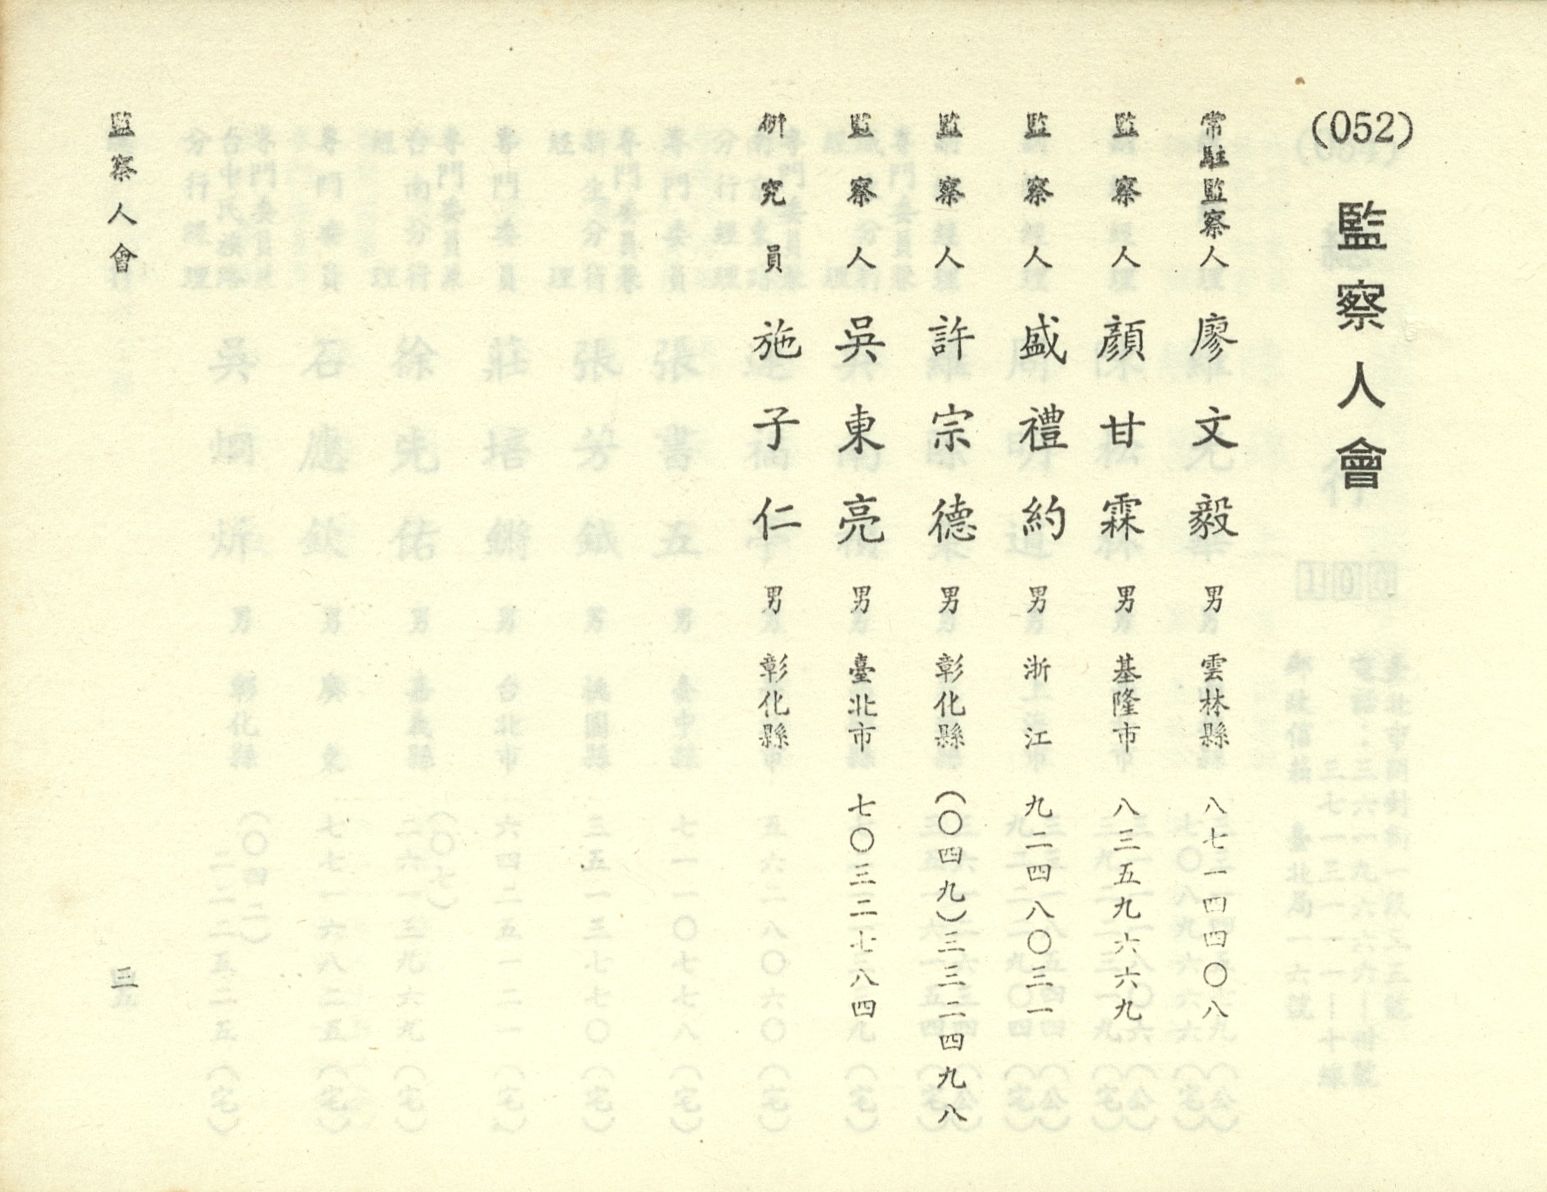 (052) 監察人會
常駐監察人 廖文毅 男 雲林縣 八七一四四〇八
監察人 顏甘霖 男 基隆市 八三五九六六九
監察人 盛禮約 男 浙江 九二四八〇三一
監察人 許宗德 男 彰化縣 (〇四九)三三二四九八
監察人 吳東亮 男 臺北市 七〇三二七八四
研究員 施子仁 男 彰化縣
監察人會
三